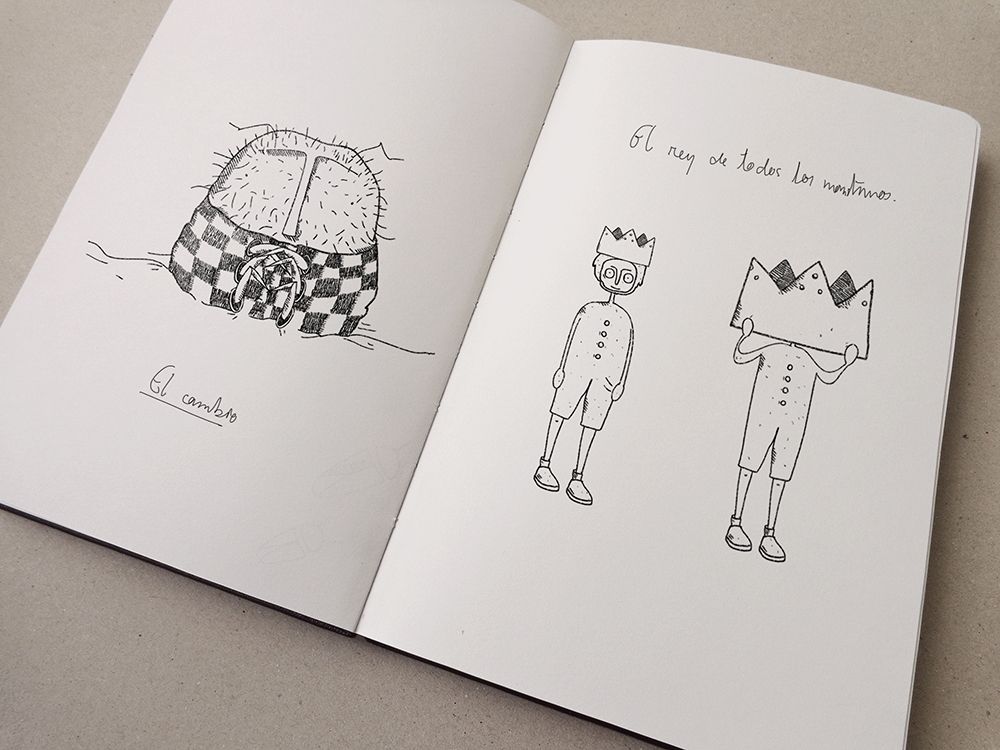 El cambio
El rey de todos los monstruos.